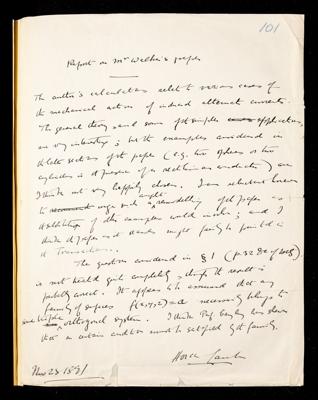 101
Report on Mr Walker's paper
The author's calculations relate to various cases of
the mechanical action of induced alternate currents.
The general theory and some of the simpler applications
are very interesting; but the examples considered in
the later sections of the paper (e.g. two spheres or two
cylinders in the presence of a rectilinear conductor) are
I think not very happily chosen. I am reluctant however
to urge such a remodelling of the paper as
substitution of other examples would involve; and I
think the paper as it stands might fairly be printed in
the Transactions.
The question considered in § 1
is not treated quite completely, though the result is
probably correct. It appears to be assumed that any
family of surfaces f(x,y,z) = a necessarily belongs to
one triple orthogonal system. I think Prof Cayley has shewn
that a certain condition must be satisfied by the family.
Horace Lamb
Nov 23 1891